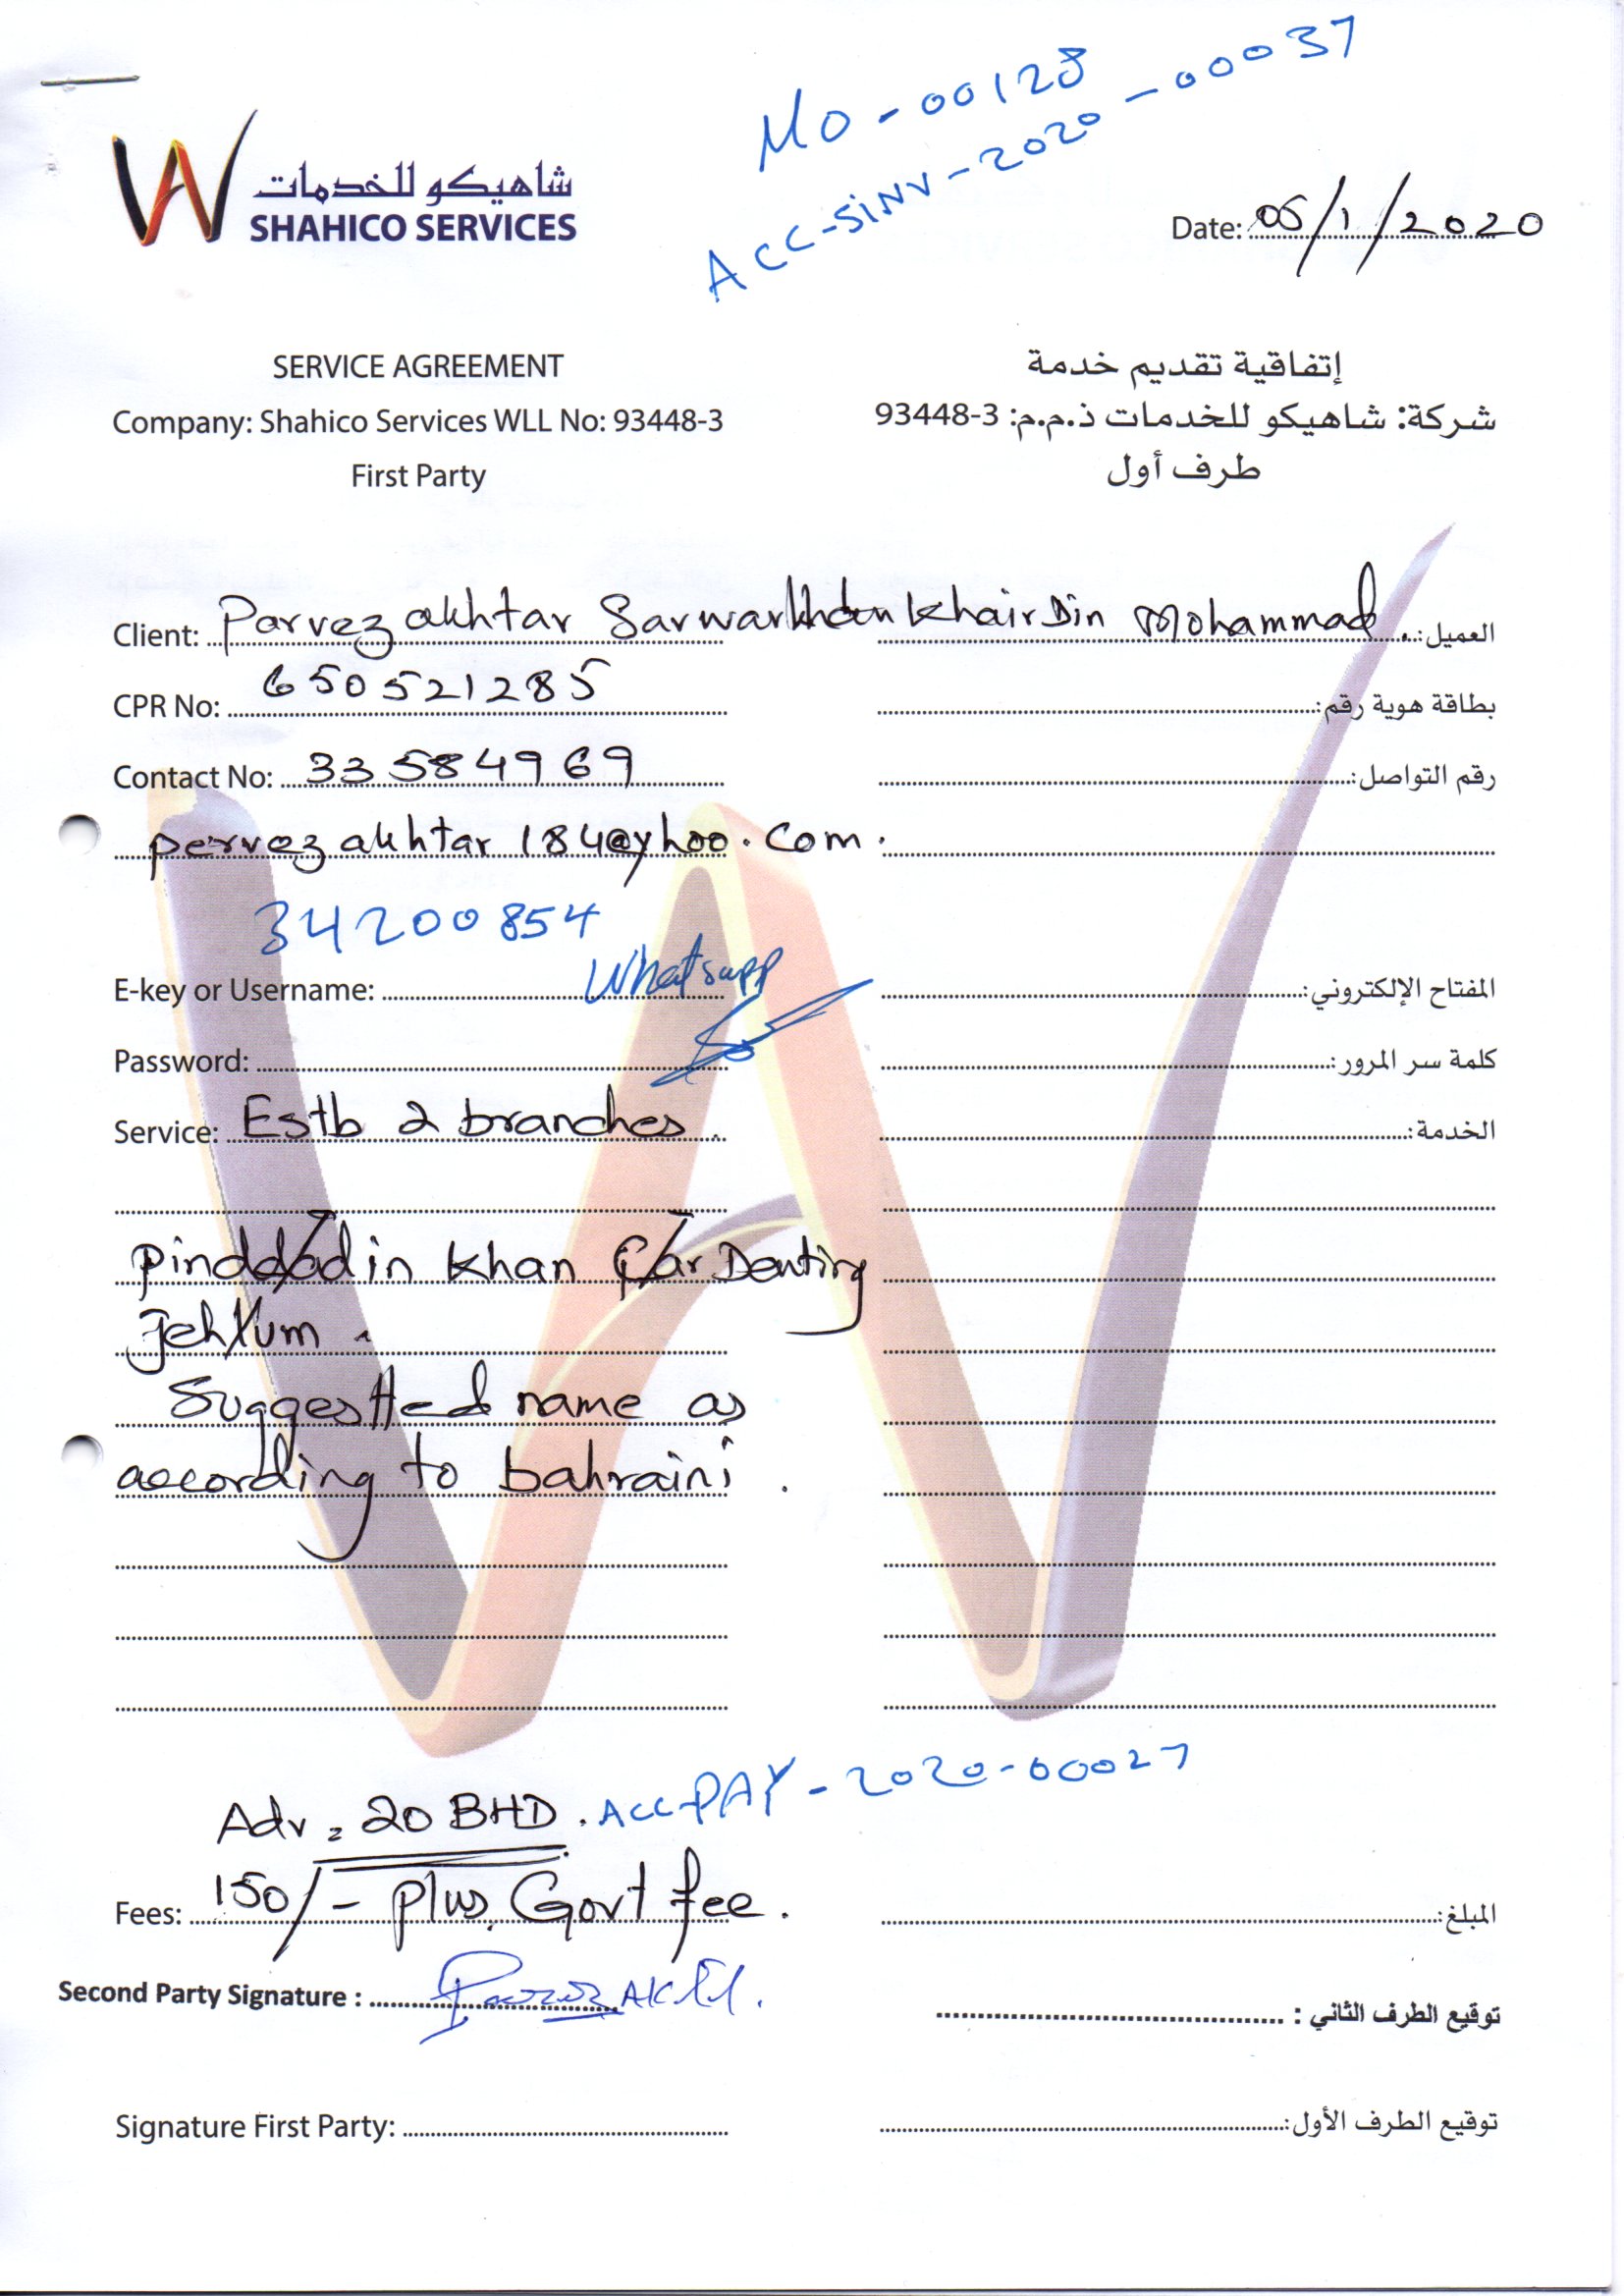 MO-00128
ACC-SINV-2020-00037
شاهيكو للخدمات
SHAHICO SERVICES
Date: 05/1/2020
SERVICE AGREEMENT
إتفاقية تقديم خدمة
Company: Shahico Services WLL No: 93448-3
شركة: شاهيكو للخدمات ذ.م.م: 3-93448
First Party
طرف أول
Client: Parvez akhtar Sarwarkhan Khair Din Mohammad. العميل:
CPR No: 650521285 بطاقة هوية رقم:
Contact No: 33584969 رقم التواصل:
pervez akhtar 184@yhoo.com.
34200854
Whatsapp
E-key or Username: المفتاح الإلكتروني:
Password: كلمة سر المرور:
Service: Estb 2 branches. الخدمة:
pinddadin khan Car Denting
Jehlum.
Suggestted name as
according to bahraini.
Adv = 20 BHD. ACC-PAY-2020-00027
Fees: 150/- plus Govt fee. المبلغ:
Second Party Signature : توقيع الطرف الثاني :
Signature First Party: توقيع الطرف الأول: